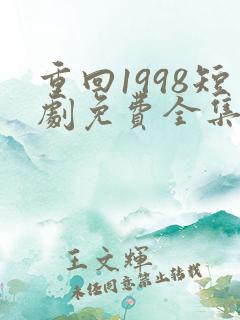 重回1998短
劇免費全集
王文輝
未经同意禁止转载